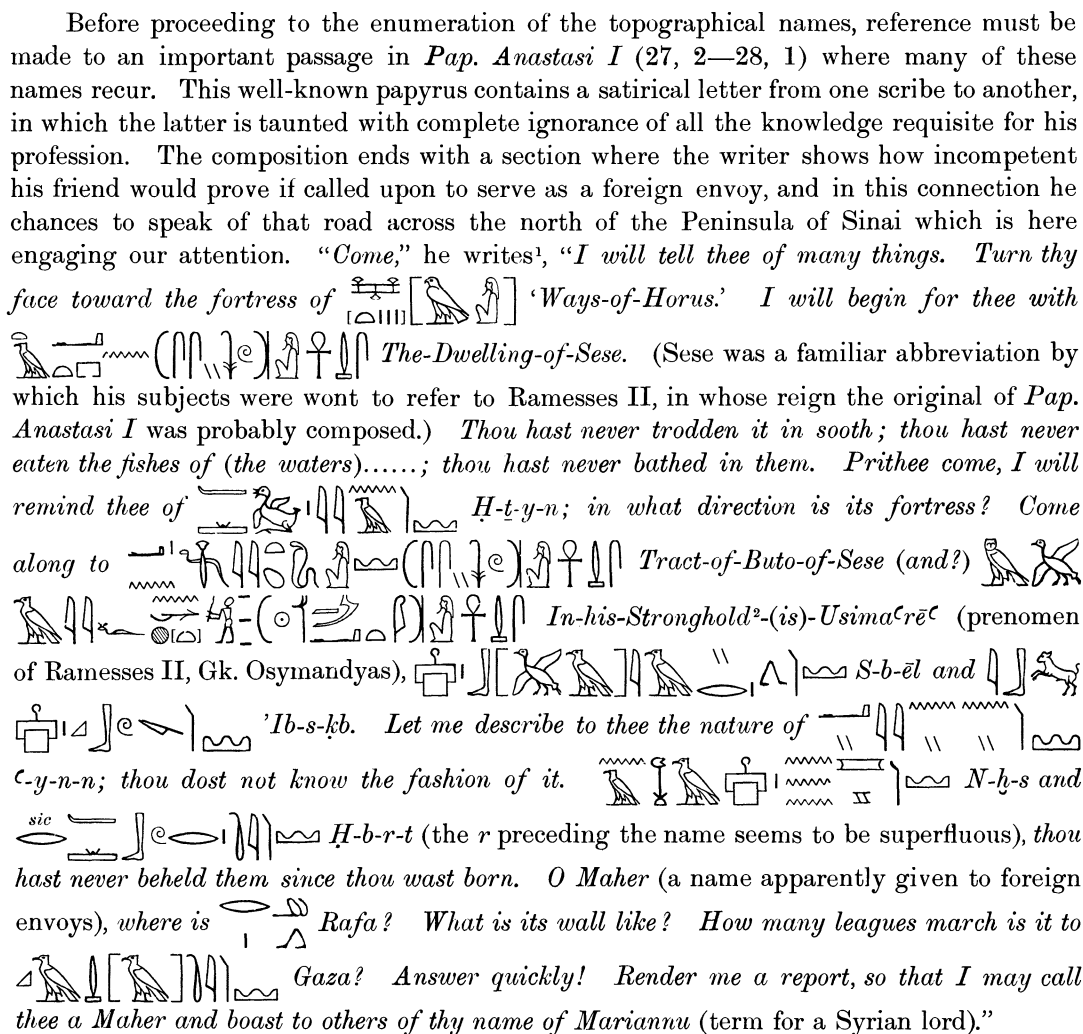 Before proceeding to the enumeration of the topographical names, reference must be
made to an important passage in Pap. Anastasi I (27, 2—28, 1) where many of these
names recur. This well-known papyrus contains a satirical letter from one scribe to another,
in which the latter is taunted with complete ignorance of all the knowledge requisite for his
profession. The composition ends with a section where the writer shows how incompetent
his friend would prove if called upon to serve as a foreign envoy, and in this connection he
chances to speak of that road across the north of the Peninsula of Sinai which is here
engaging our attention. “Come,” he writes¹, “I will tell thee of many things. Turn thy
face toward the fortress of ‘Ways-of-Horus.’ I will begin for thee with
The-Dwelling-of-Sese. (Sese was a familiar abbreviation by
which his subjects were wont to refer to Ramesses II, in whose reign the original of Pap.
Anastasi I was probably composed.) Thou hast never trodden it in sooth; thou hast never
eaten the fishes of (the waters)......; thou hast never bathed in them. Prithee come, I will
remind thee of Ḥ-ṯ-y-n; in what direction is its fortress? Come
along to Tract-of-Buto-of-Sese (and?)
In-his-Stronghold²-(is)-Usimaʿrēʿ (prenomen
of Ramesses II, Gk. Osymandyas), S-b-ēl and
’Ib-s-ḳb. Let me describe to thee the nature of
ʿ-y-n-n; thou dost not know the fashion of it. N-ḫ-s and
sic Ḥ-b-r-t (the r preceding the name seems to be superfluous), thou
hast never beheld them since thou wast born. O Maher (a name apparently given to foreign
envoys), where is Rafa? What is its wall like? How many leagues march is it to
Gaza? Answer quickly! Render me a report, so that I may call
thee a Maher and boast to others of thy name of Mariannu (term for a Syrian lord).”